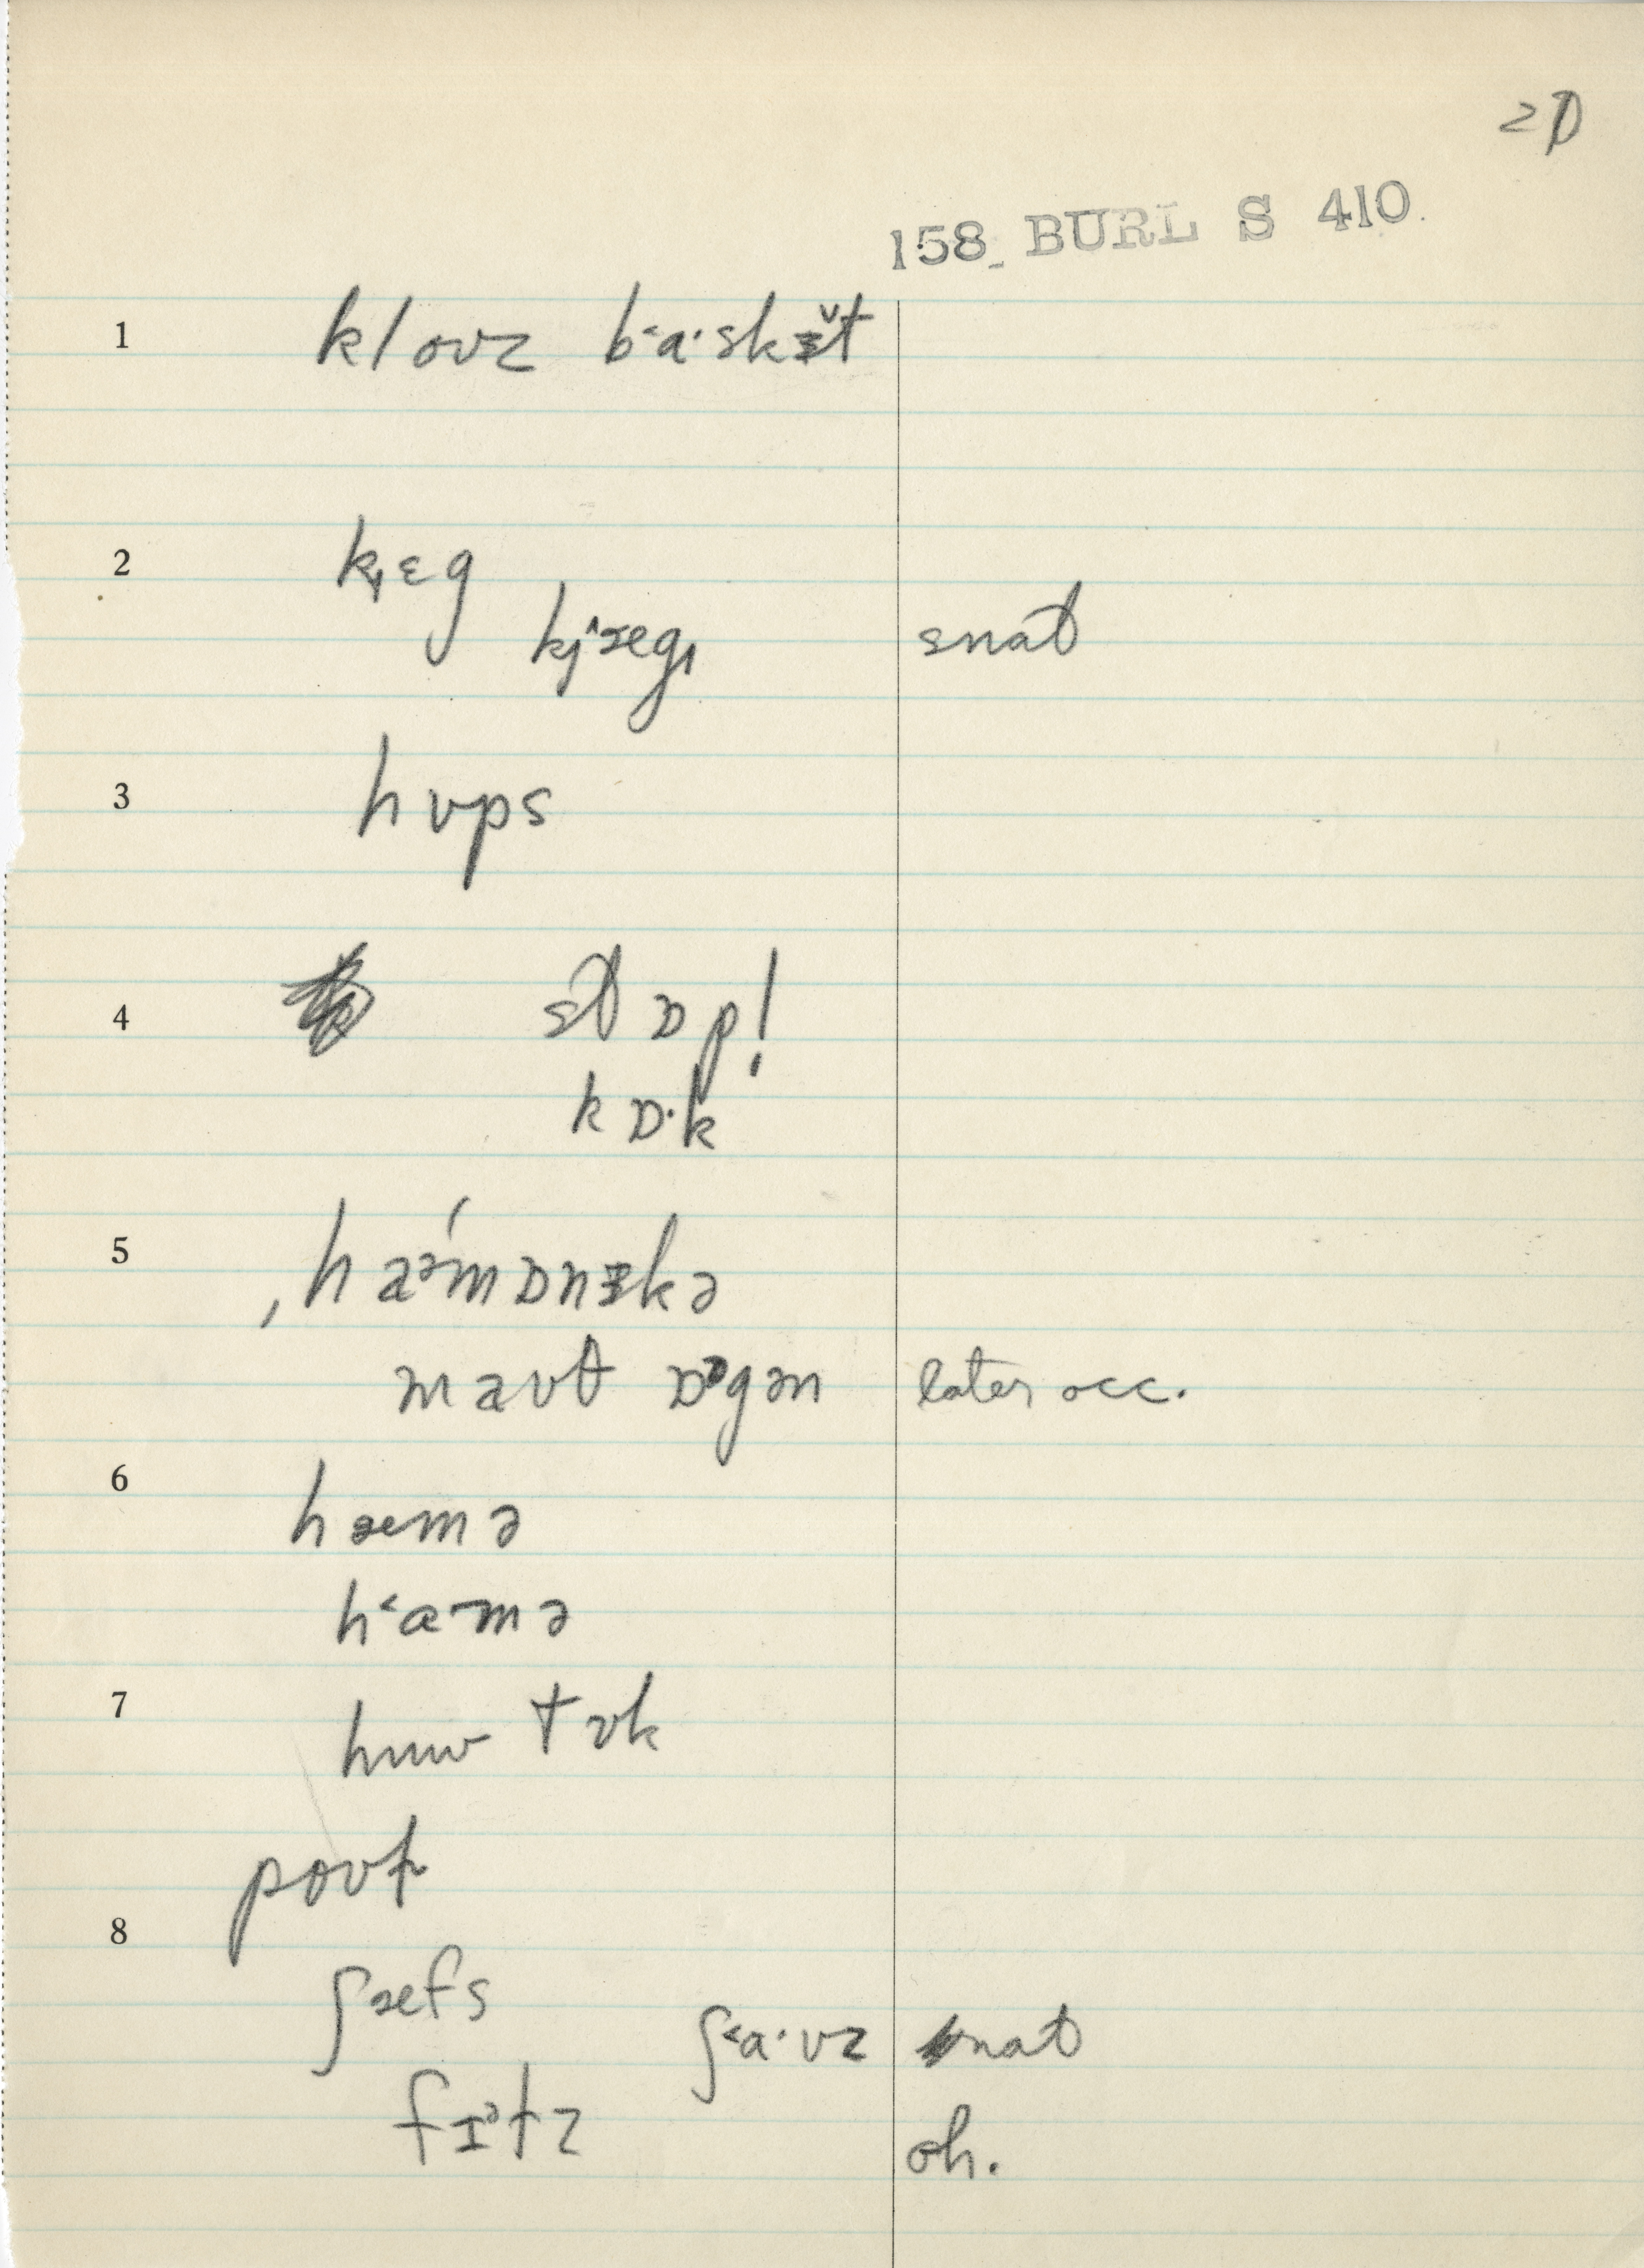 20
158 BURL S 410
1 kloʊz bˈ˂a·skɪ̌t
2 k̡ɛg
kj^æg̡ snat
3 hʊps
4 stɒp!
kɒ·k
5 ˌhaəˊmɒnɪkə
maʊt ɒᵊgən later occ.
6 hæmə
h˂a·mə
7 huw tʊk
poʊk
8 ʃæfs
ʃ˂a·vz nat
fɪᵊtz oh.